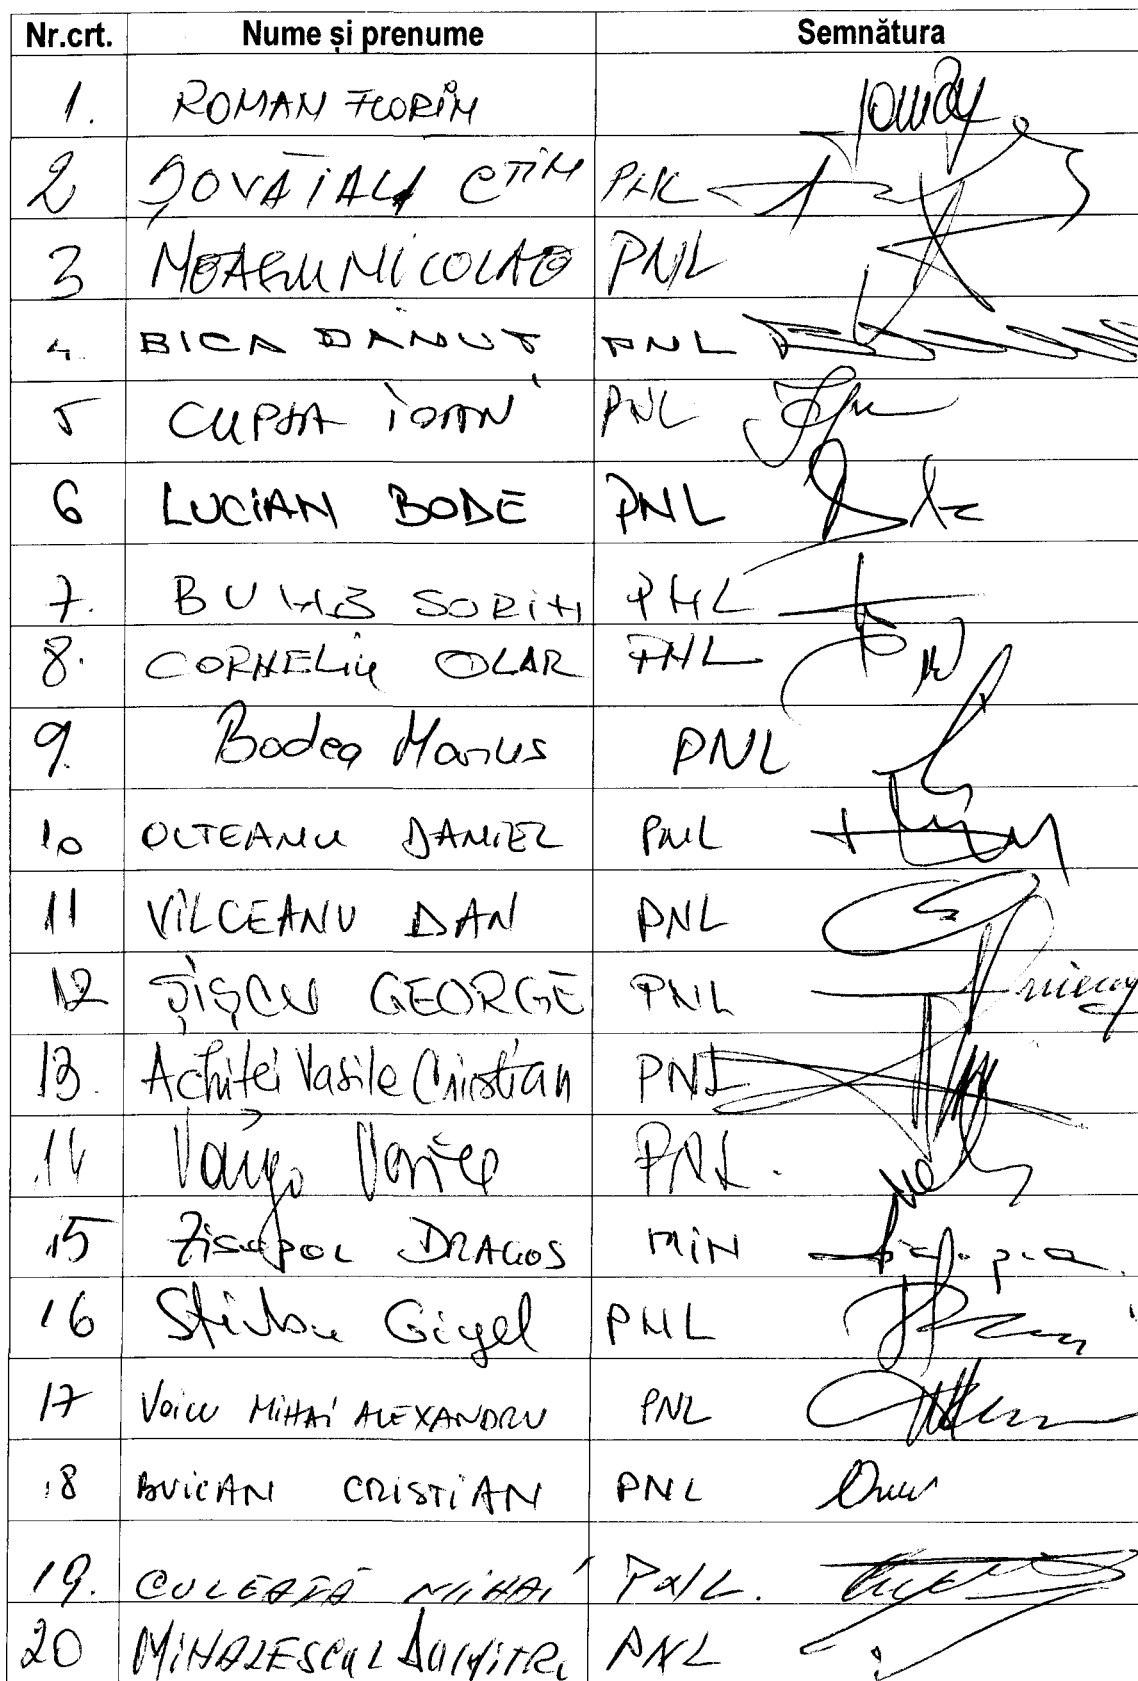 Nr.crt. Nume și prenume Semnătura
1. ROMAN FLORIN
2 ȘOVĂIALĂ CTIN PNL
3 NEAGU NICOLAE PNL
4. BICA DĂNUȚ PNL
5 CUPȘA IOAN PNL
6 LUCIAN BODE PNL
7. BUMB SORIN PNL
8. CORNELIU OLAR PNL
9. Bodea Marius PNL
10 OLTEANU DANIEL PNL
11 VÎLCEANU DAN PNL
12 ȘIȘCU GEORGE PNL
13. Achiței Vasile Cristian PNL
14 Varga Vasile PNL.
15 Zisopol DRAGOȘ MIN
16 Știrbu Gigel PNL
17 Voicu MIHAI ALEXANDRU PNL
18 BUICAN CRISTIAN PNL
19. CULEAFĂ MIHAI PNL.
20 MIHALESCUL DUMITRU PNL